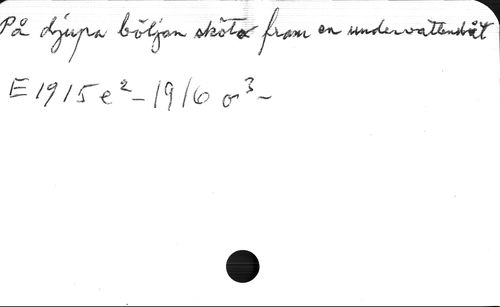 På djupa böljan sköts fram en undervattensbåt
E 1915 e² – 1916 o³ –